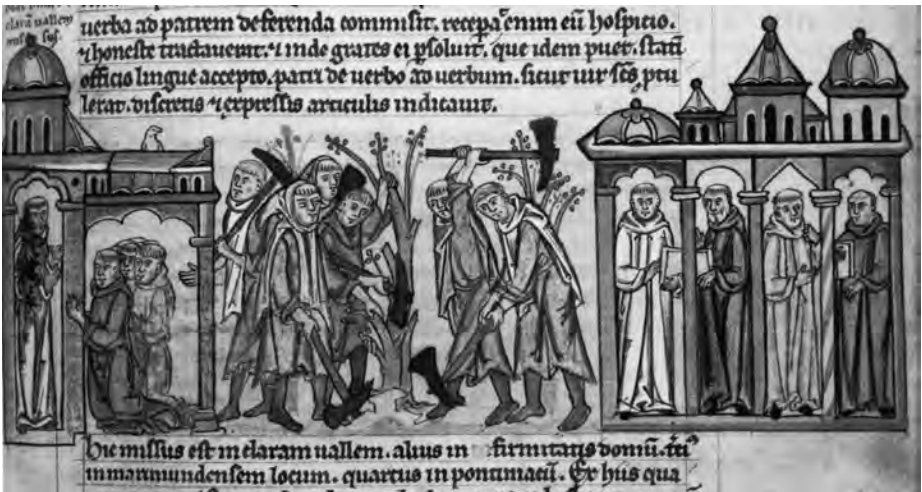 clarā uallem
uerba ad patrem deferenda commisit. recepaͣ enim eū hospicio.
⁊ honeste tractauerat. ⁊ inde grates ei ꝑsoluit. que idem puer. statī
officio lingue accepto. patri de uerbo ad uerbum. sicut uir sc̄s ptu
lerat. discretis ⁊ expressis articulis indicauit.
Hic missus est in claram uallem. alius in firmitatis domū. tci
in marimundensem locum. quartus in pontiniacū. Ex hiis qua